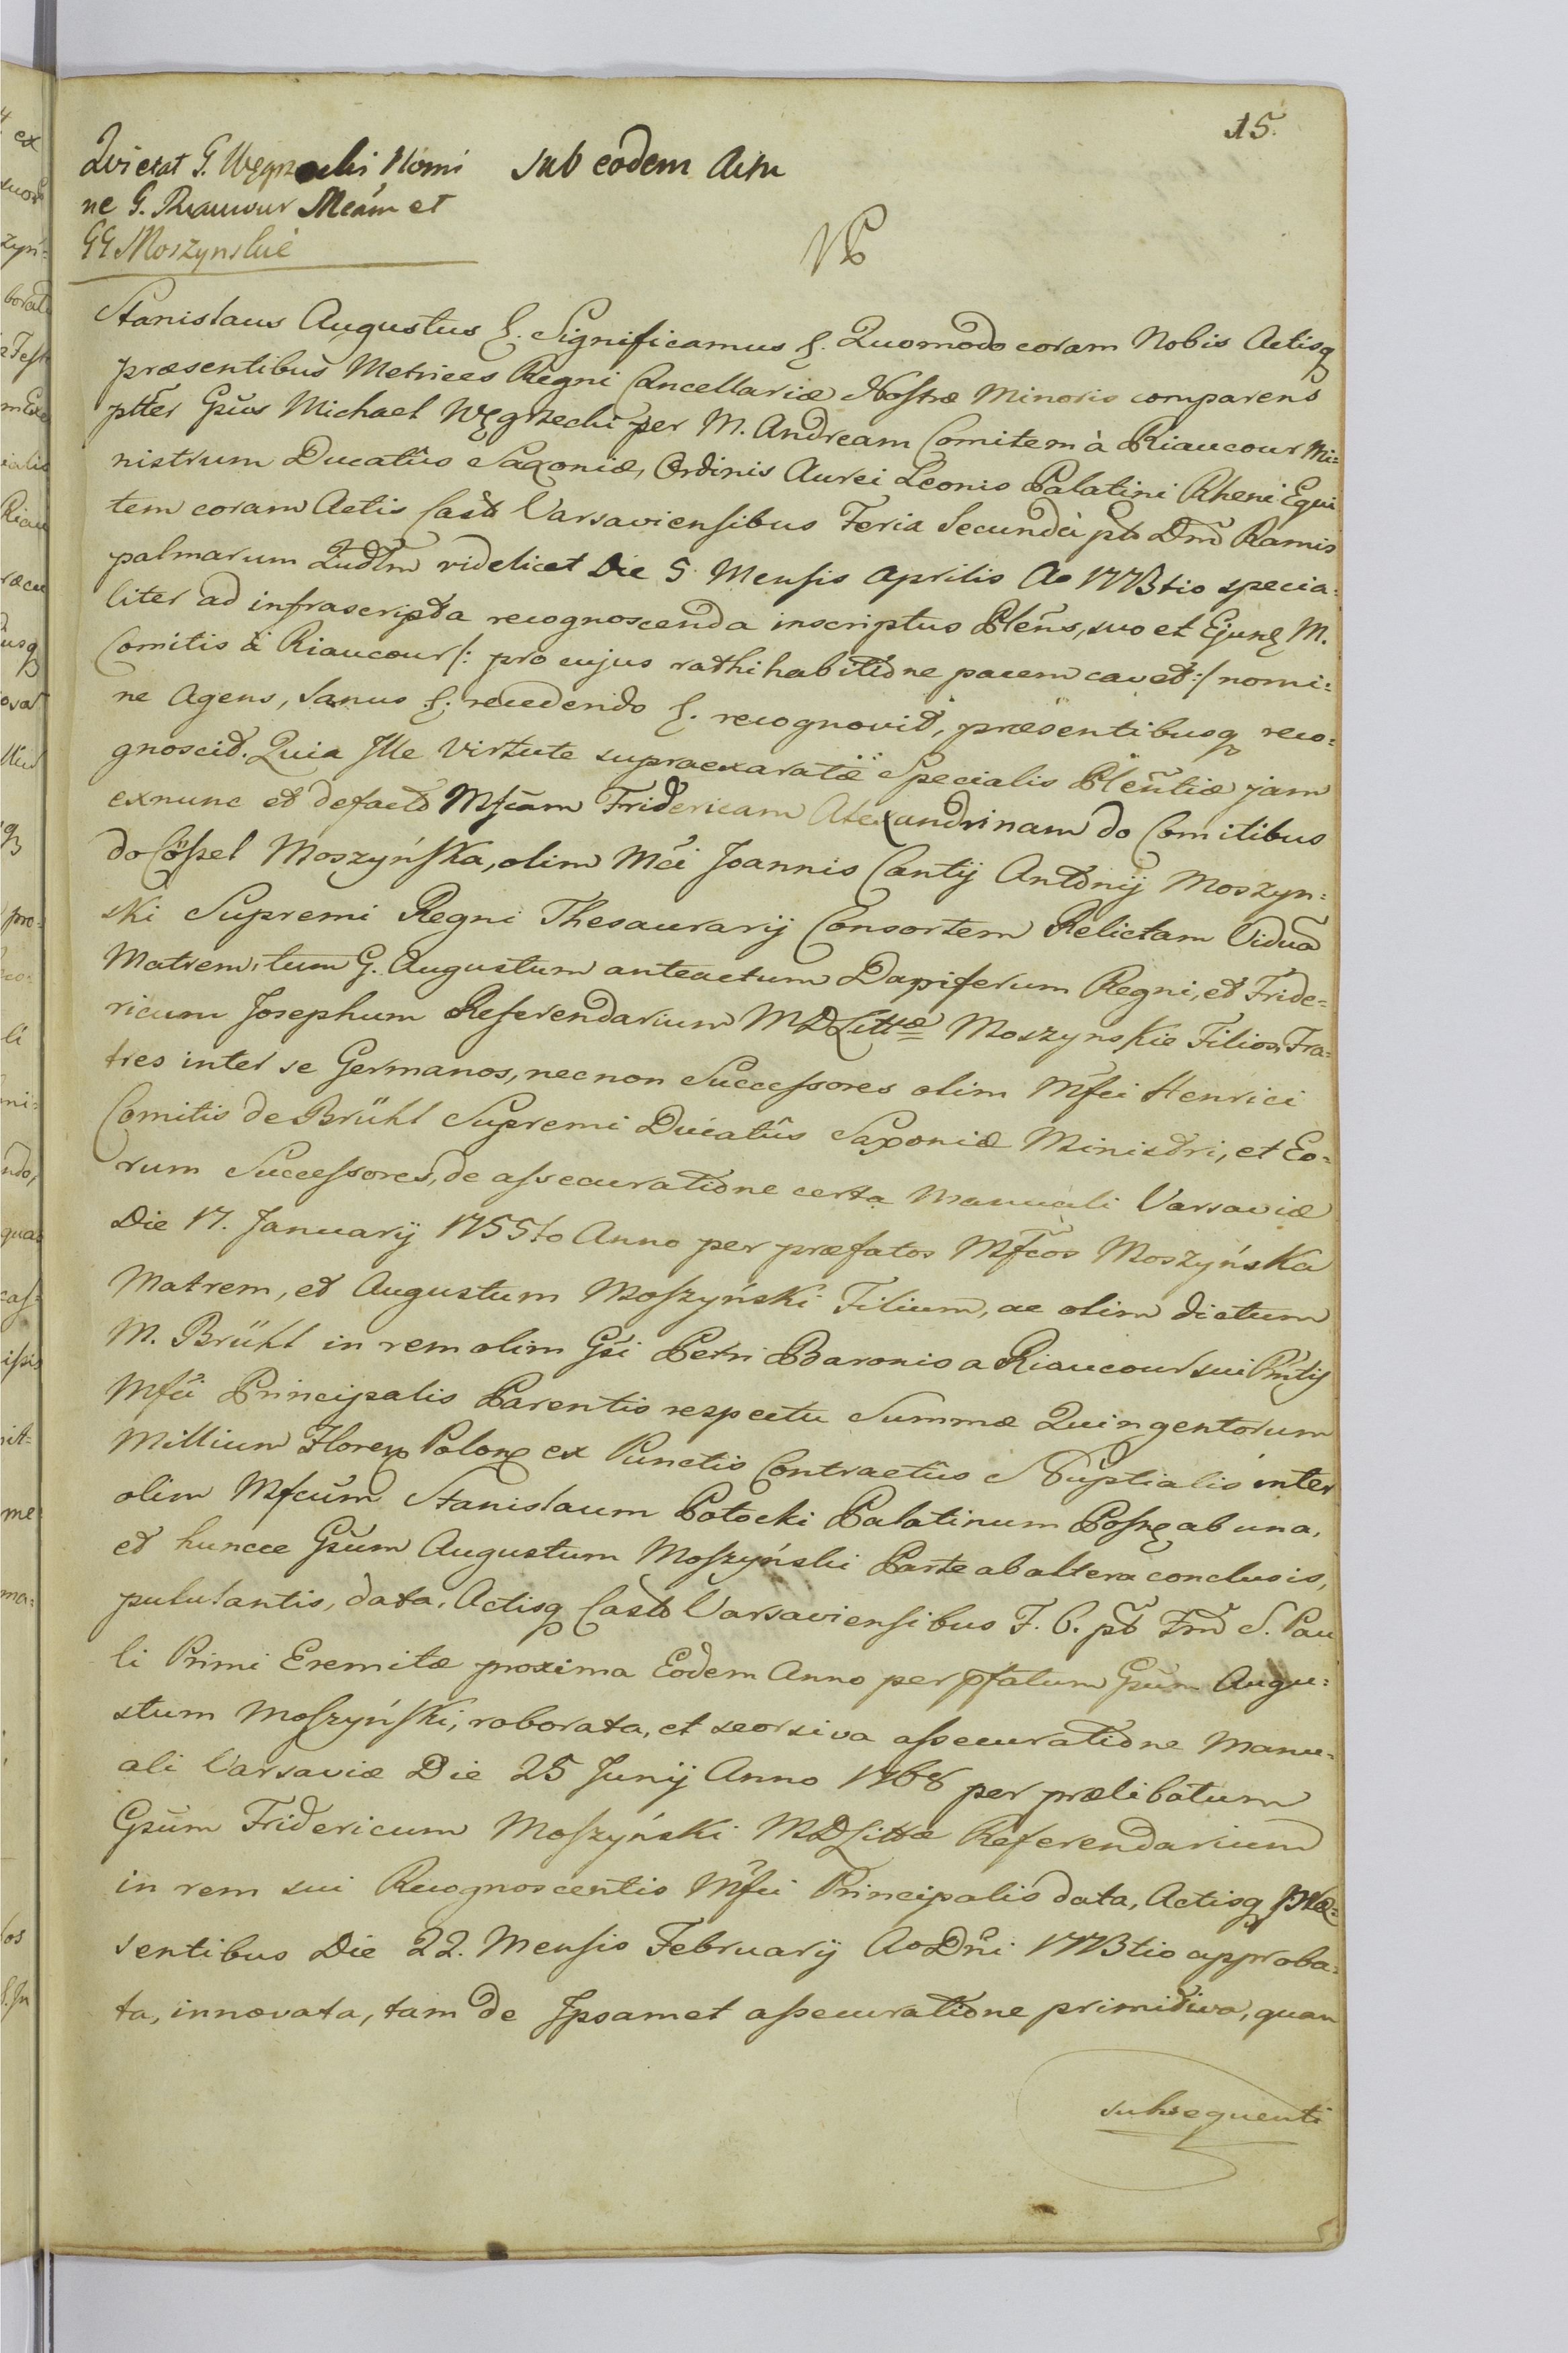 15.
Quietat G. Węgrzecki Nomi
ne G. Riaucour Mcām et
GG Moszynskie
sub eodem Actu
Stanislaus Augustus &. Significamus &. Quomodo coram Nobis Actisq
præsentibus Metrices Regni Cancellariæ Nostræ Minoris comparens
ptter Gsūs Michael Węgrzecki per M. Andream Comitem à Riaucour Mi:
nistrum Ducatûs Saxoniæ, Ordinis Aurei Leonis Palatini Rheni Equi
tem coram Actis Castr Varsaviensibus Feria Secundâ pt Dm̃ Ramis
palmarum Qudtm videlicet Die 5 Mensis Aprilis Ao 1773tio specia:
liter ad infrascripta recognoscenda inscriptus Pleñs, suo et Ejusq M.
Comitis à Riaucour /: pro cujus rathihabitione pacem cavet :/ nomi:
ne Agens, Sanus &. recedendo &. recognovit, præsentibusq reco:
gnoscit. Quia Ille Virtute supraexaratæ Specialis Pleñtiæ jam
exnunc et defacto Mfcam Fridericam Alexandrinam do Comitibus
do Cößel Moszyńska, olim Mci Joannis Cantij Antonij Moszyn:
ski Supremi Regni Thesaurarij Consortem Relictam Viduã
Matrem, tum G. Augustum anteactum Dapiferum Regni, et Fride:
ricum Josephum Referendarium MDLittæ Moszynskie Filios, Fra:
tres inter se Germanos, necnon Successores olim Mfci Henrici
Comitis de Brühl Supremi Ducatûs Saxoniæ Ministri, et Eo:
rum Successores, de assecuratione certa Manuali Varsaviæ
Die 17. Januarij 1755to Anno per præfatos Mfcos Moszyńska
Matrem, et Augustum Moszyński Filium, ac olim dictum
M. Brühl in rem olim Gsi Petri Baronis a Riaucour sui Pñtis
Mfci Principalis Parentis respectu Summæ Quingentorum
Millium Floren Polonq ex Punctis Contractûs Nuptialis inter
olim Mfcum Stanislaum Potocki Palatinum Posnq ab una,
et huncce Gsum Augustum Moszyński Parte ab altera conclusis,
pululantis, data, Actisq Castr Varsaviensibus F. 6. pt Fm̃ S. Pau
li Primi Eremitæ proxima Eodem Anno per pfatum Gsum Augu:
stum Moszyński, roborata, et seorsiva assecuratione Manu:
ali Varsaviæ Die 25 Junij Anno 1768 per prælibatum
Gsum Fridericum Moszyński MDLittæ Referendarium
in rem sui Recognoscentis Mfci Principalis data, Actisq Præ:
sentibus Die 22. Mensis Februarij Ao Dñi 1773tio approba:
ta, innovata, tam de Ipsamet assecuratione primitiva, quam
subsequenti